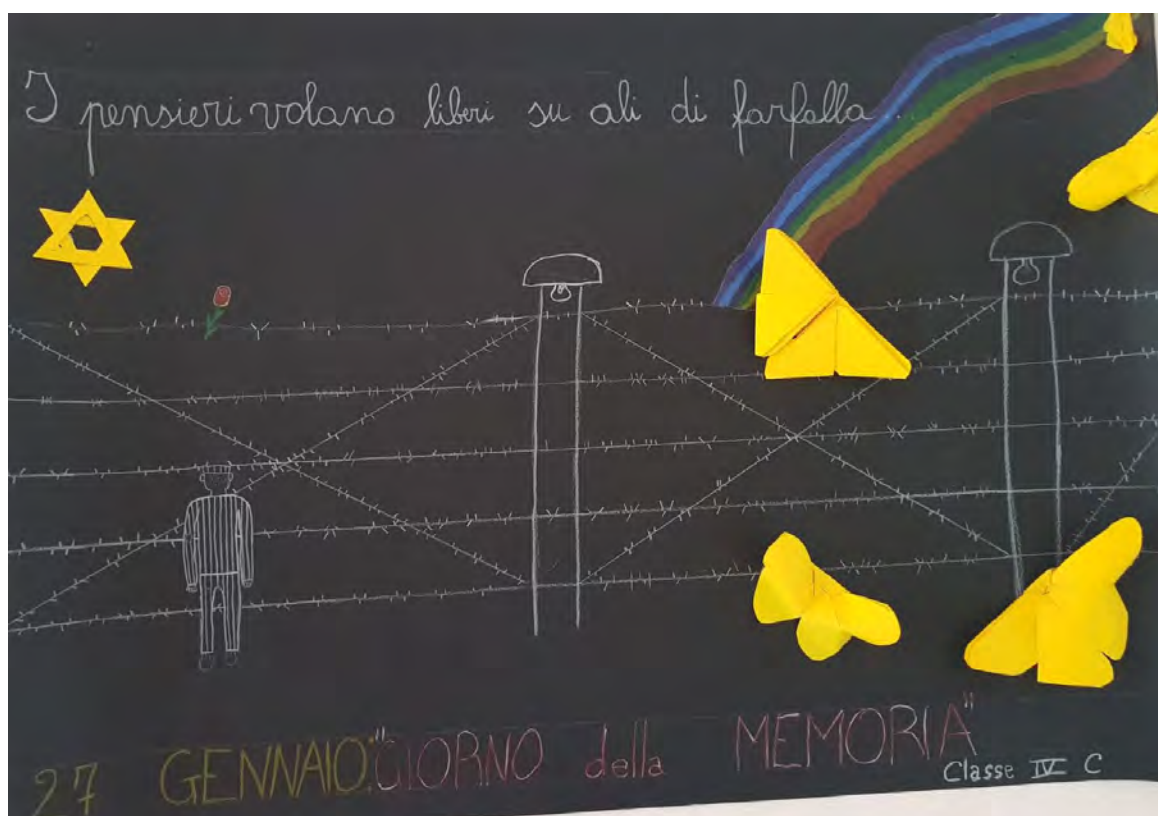 I pensieri volano liberi su ali di farfalla...
27 GENNAIO: "GIORNO della MEMORIA"
Classe IV C